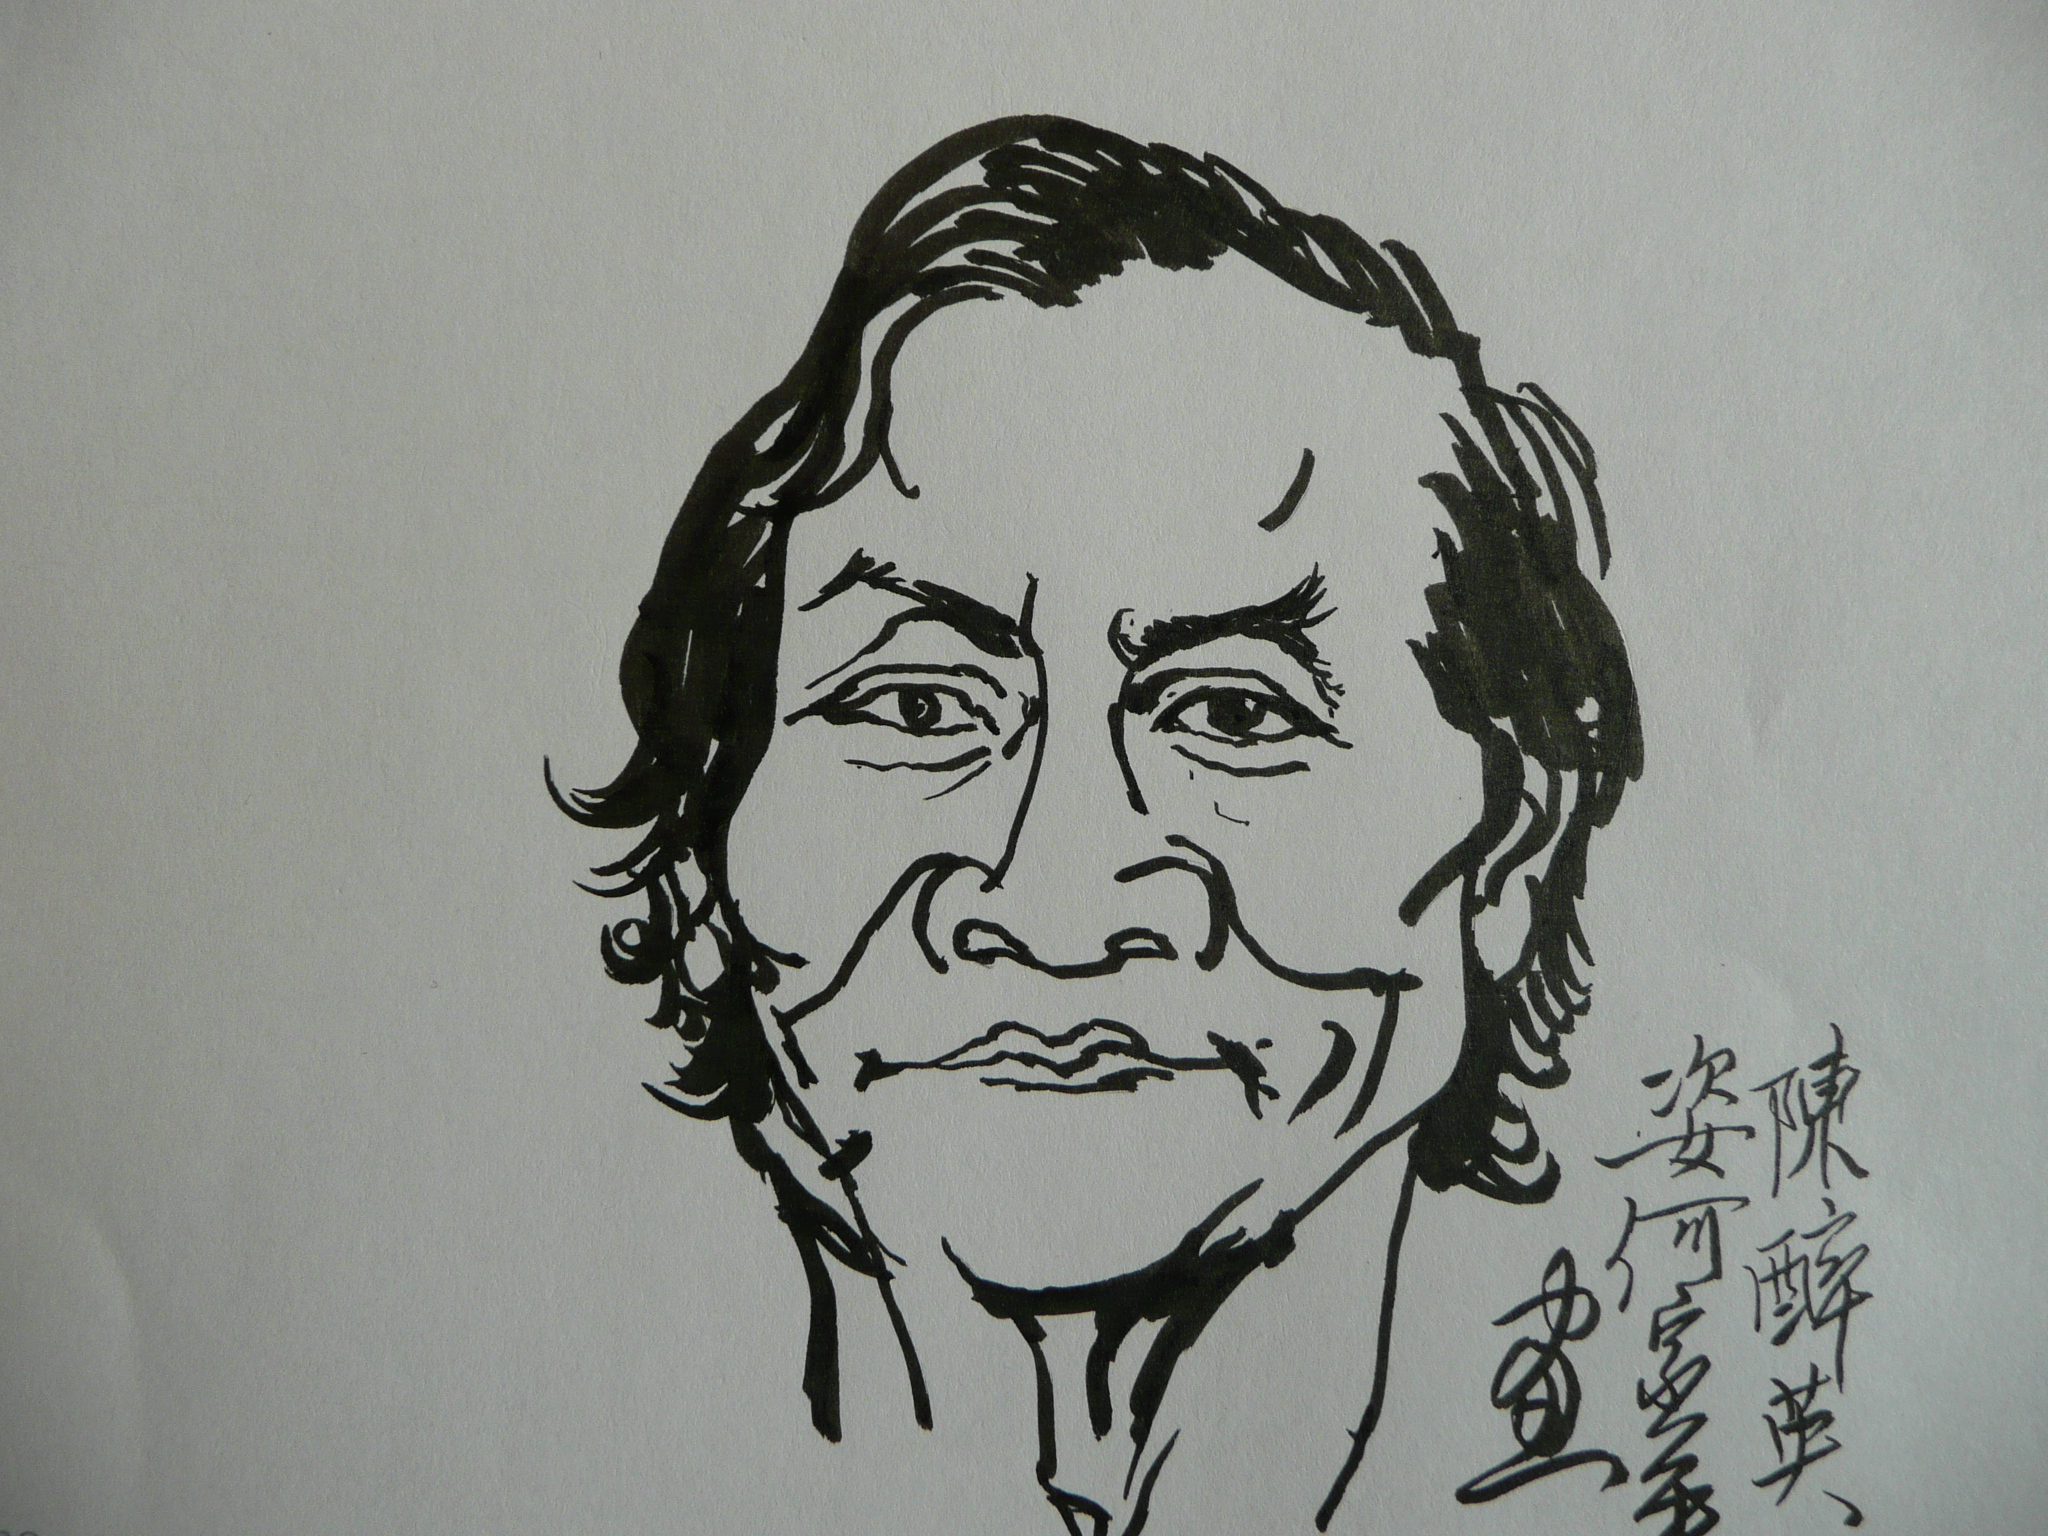 陳醉英
姿何室
畫